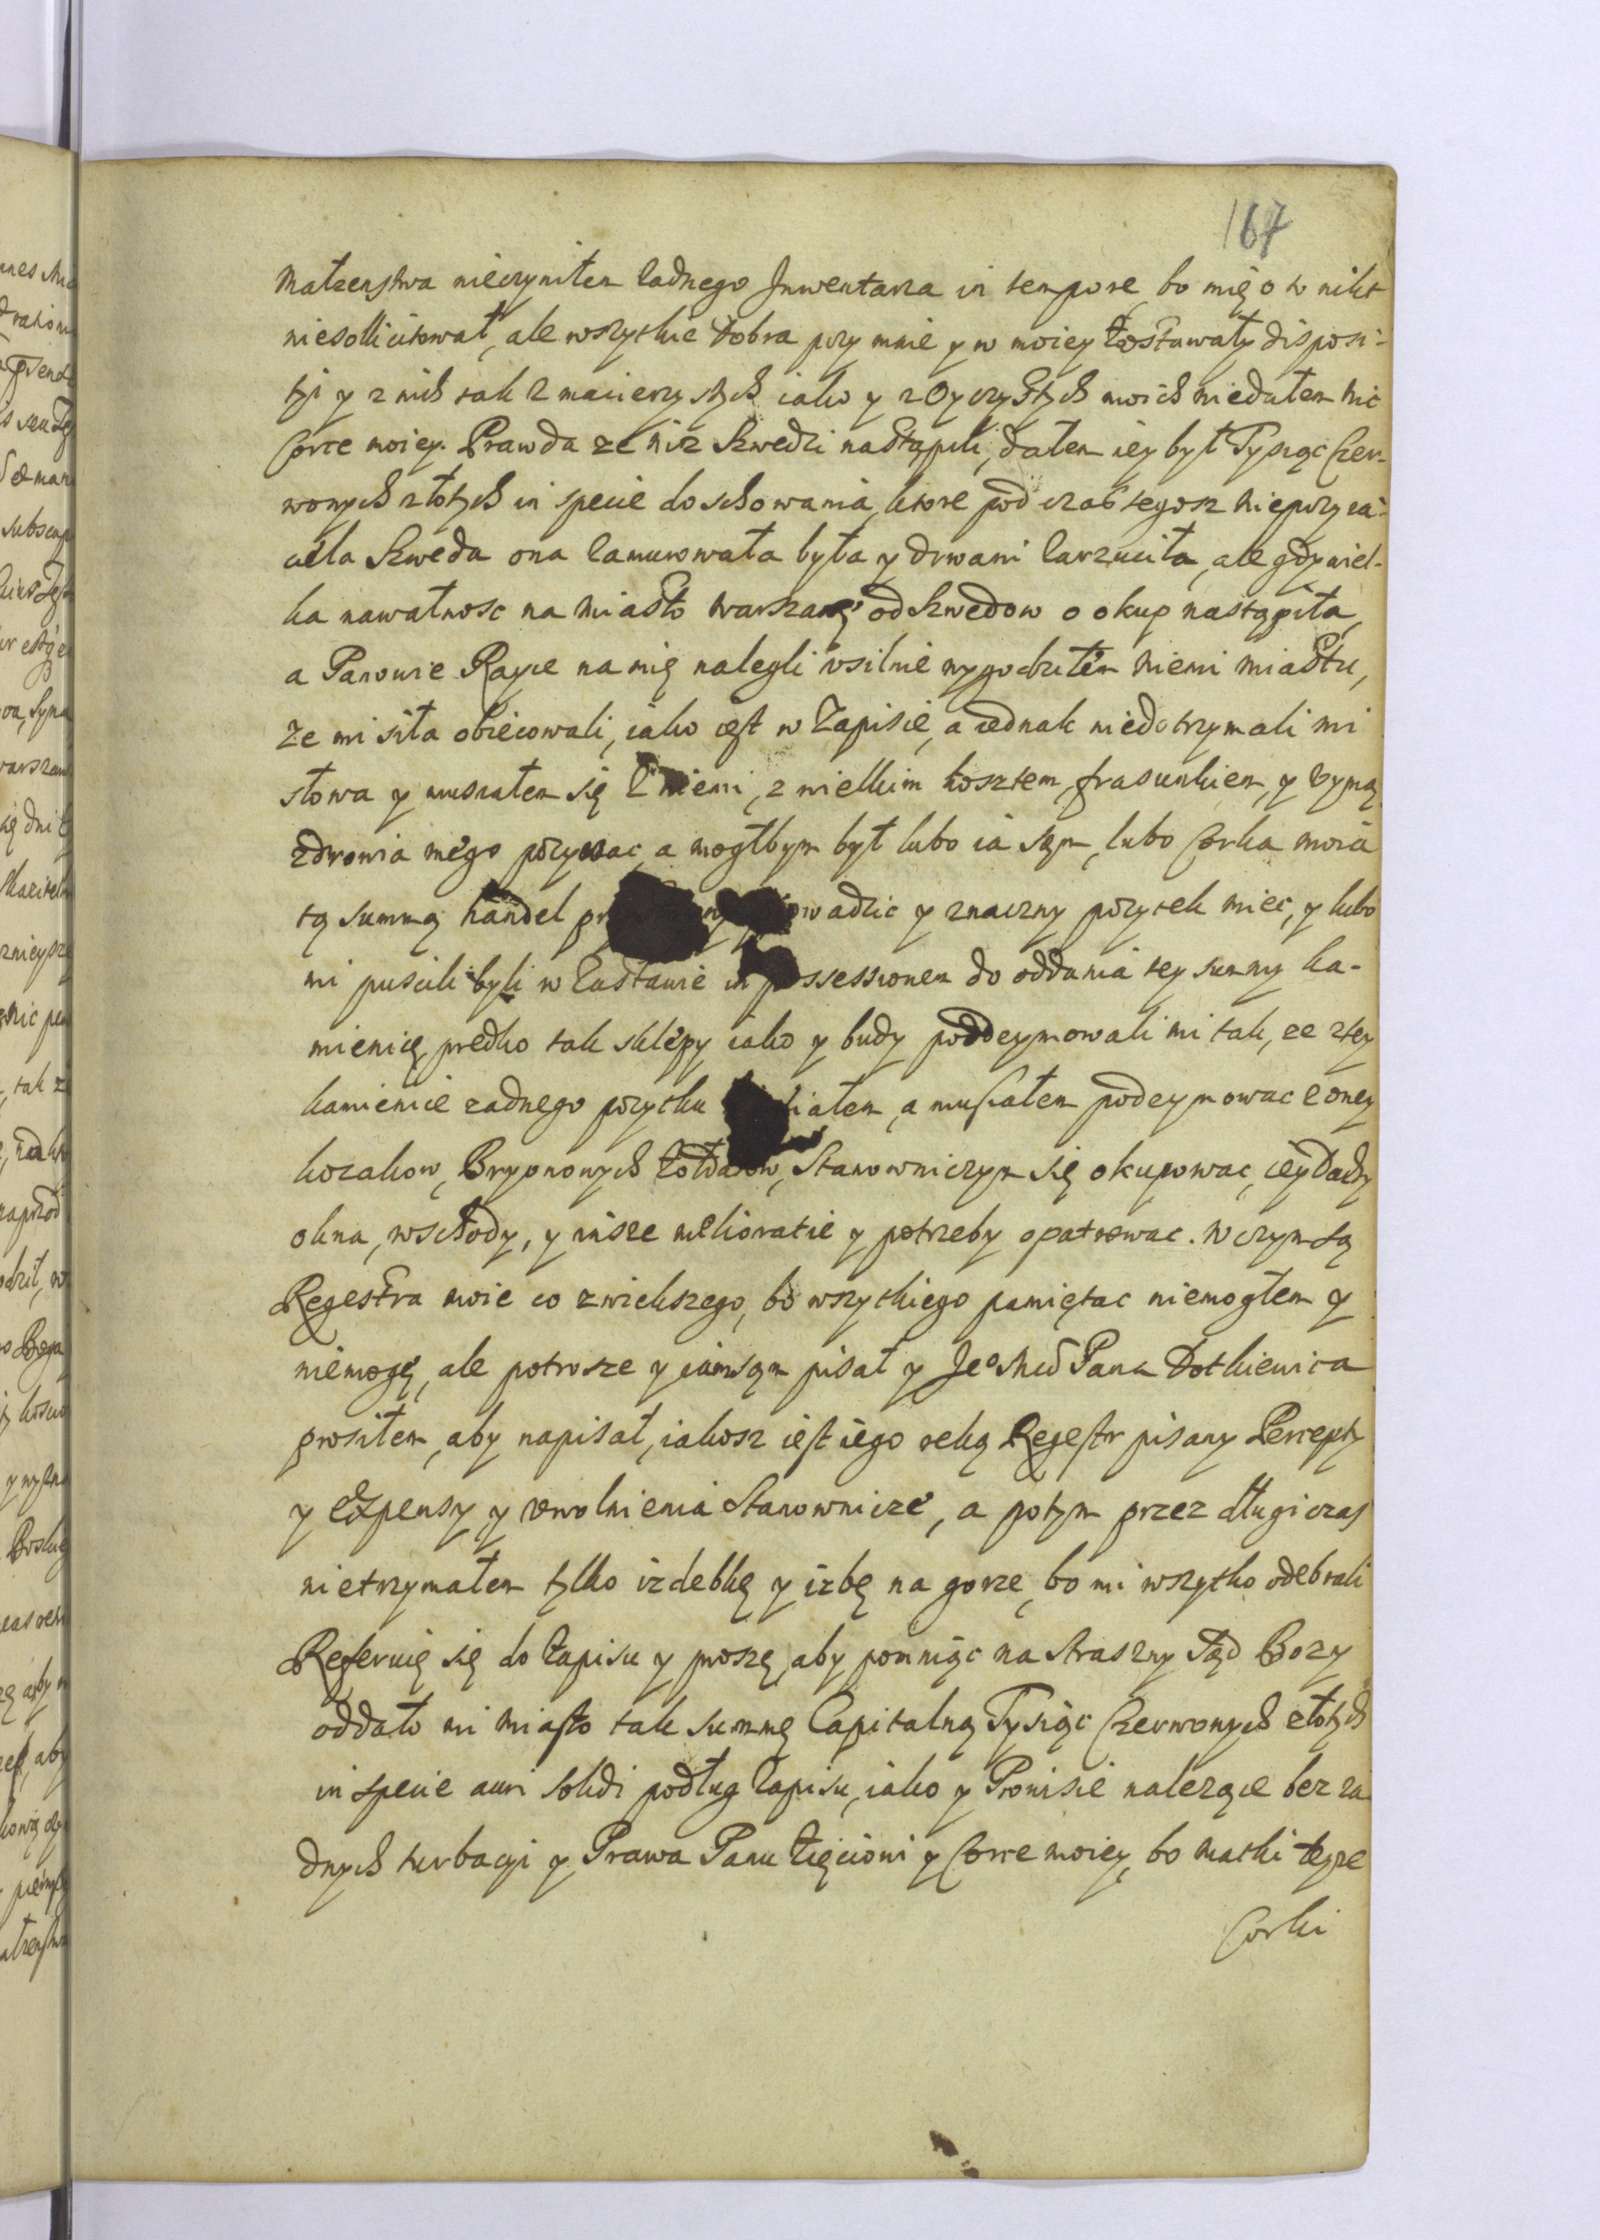 167
Małzenstwa nieczyniłem Zadnego Inwentarza in tempore, bo mię o to nikt
niesollicitował, ale wszytkie Dobra przy mnie y w moiey Zostawały disposi-
tji y z nich tak z macierzystych iako y z Oyczystych moich niedałem nic
Corce moiey. Prawda ze niz Szwedzi nastąpili, dałem iey był Tysiąc Czer-
wonych złotych in specie do schowania, ktore pod czas tegosz Nieprzyia-
ciela Szweda ona zamurowała była y drwami zarzuciła, ale gdy wiel-
ka nawałnosc na Miasto Warszawę od Szwedow o okup nastąpiła,
a Panowie Rayce na mię nalegli vsilnie wygodziłem niemi Miastu,
ze mi siła obiecowali, iako iest w Zapisie, a iednak niedotrzymali mi
słowa y musiałem się Z niemi, z wielkim kosztem, frasunkiem, y vymą
zdrowia mego pozywac, a mogłbym był lubo ia sąm, lubo Corka moia
tą summą handel prowadzic y znaczny pozytek miec, y lubo
mi puscili byli w Zastawie in possessionem do oddania tey summy ka-
mienicę, predko tak sklepy iako y budy poddeymowali mi tak, ze z tey
kamienice zadnego pozytku a musiałem podeymowac z oney
kozakow, Bryonowych Zołdatow, Stanowniczym się okupowac, iey Dachy
okna, wschody, y insze melioratie y potrzeby opatrowac. W czym są
Regestra moie co zwiekszego, bo wszytkiego pamiętac niemogłem y
niemogę, ale potrosze y iam sąm pisał y Jeo Mci Pana Dotkiewica
prosiłem, aby napisał, iakosz iest iego reką Regestr pisany Percepty
y Expensy y vwolnienia Stanownicze, a potym przez długi czas
nietrzymałem tylko izdebkę y izbę na gorze, bo mi wszytko odebrali
Referuię się do Zapisu y proszę, aby pomniąc na straszny Sąd Bozy
oddało mi Miasto tak summę Capitalną Tysiąc Czerwonych złotych
in specie auri solidi podług Zapisu, iako y Prowisie nalezące bez za
dnych turbacyi y Prawa Panu Zięciowi y Corce moiey, bo matki teyze
Corki